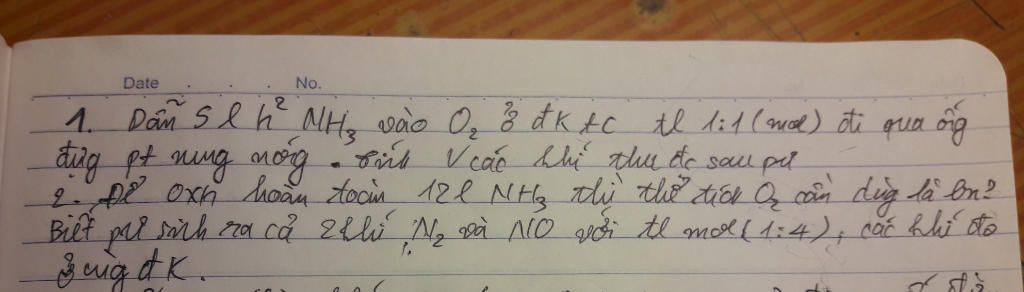 Date No.
1. Dẫn 5 l h² NH3 vào O2 ở đk tc tl 1:1 (mol) đi qua ống
đựng pt nung nóng. Tính V các khí thu đc sau pư
2. Để oxh hoàn toàn 12l NH3 thì thể tích O2 cần dùg là bn?
Biết pư sinh ra cả 2 khí N2 và NO với tl mol (1:4), các khí đo
ở cùg đk.